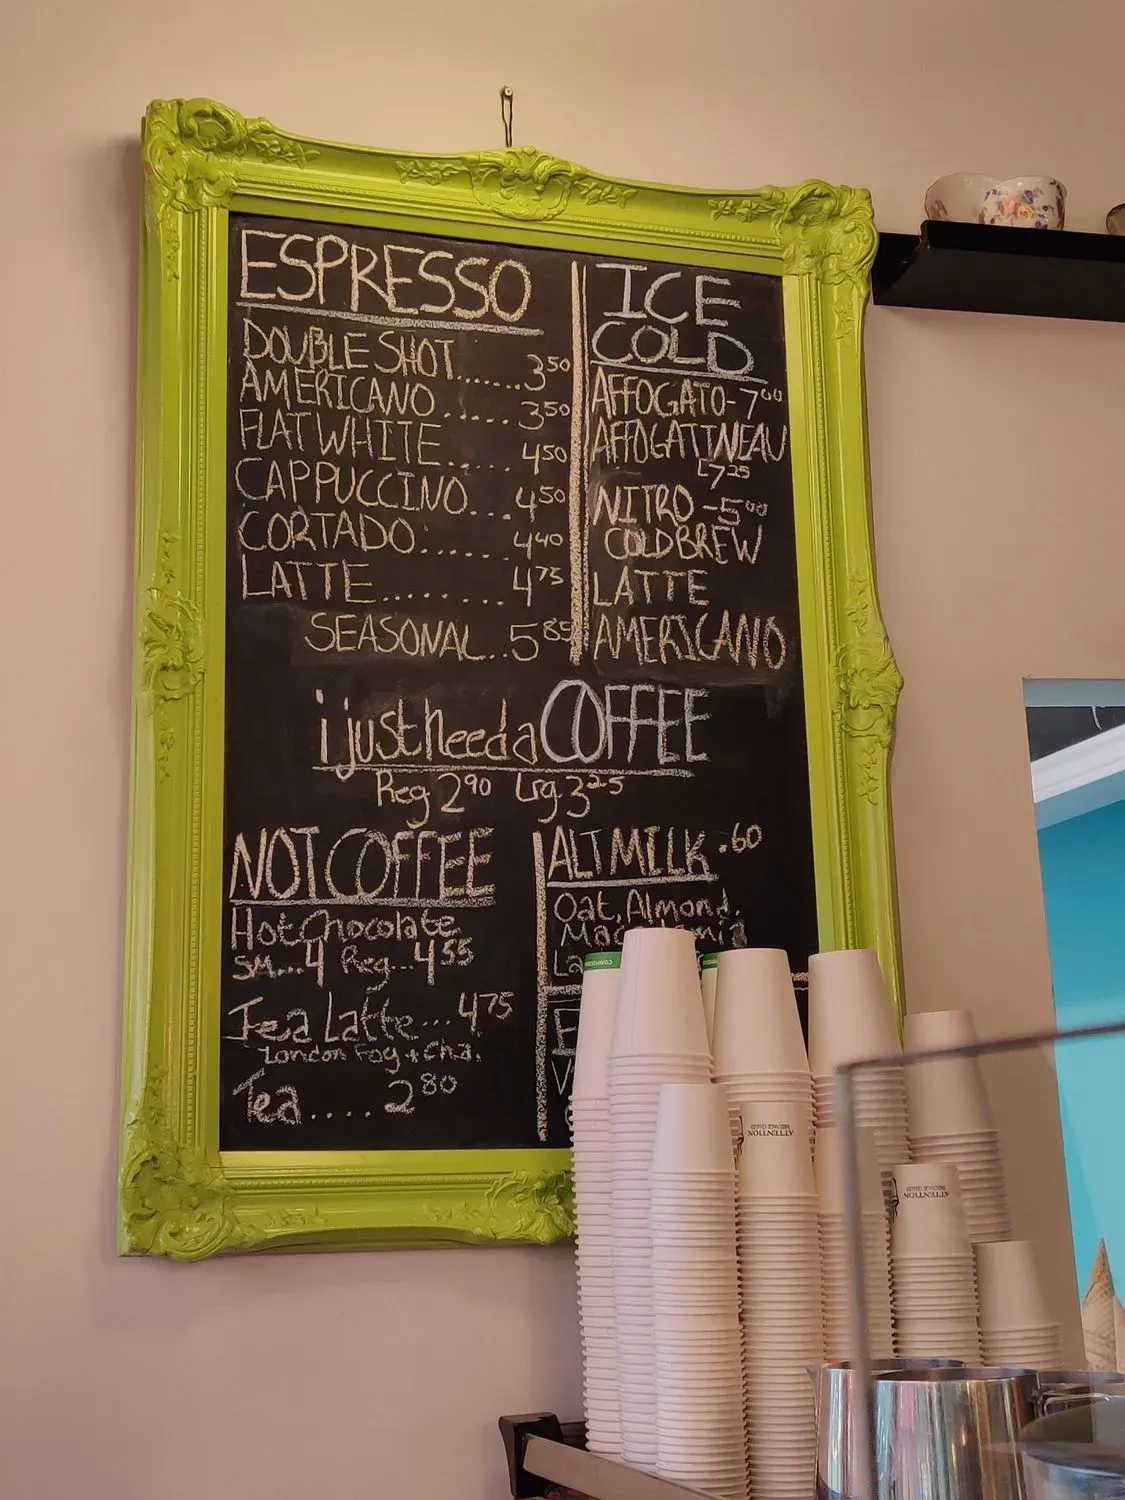 ESPRESSO
DOUBLE SHOT.......3⁵⁰
AMERICANO.....3⁵⁰
FLAT WHITE.....4⁵⁰
CAPPUCCINO...4⁵⁰
CORTADO......4⁴⁰
LATTE........4⁷⁵
SEASONAL..5⁸⁵
ICE
COLD
AFFOGATO-7⁰⁰
AFFOGATINEAU
7²⁵
NITRO-5⁰⁰
COLD BREW
LATTE
AMERICANO
i just need a COFFEE
Reg 2⁹⁰ Lrg 3²⁵
NOT COFFEE
Hot Chocolate
SM...4 Reg...4⁵⁵
Tea Latte...4⁷⁵
London Fog + Chai
Tea....2⁸⁰
ALT MILK .60
Oat, Almond,
ATTENTION
ATTENTION